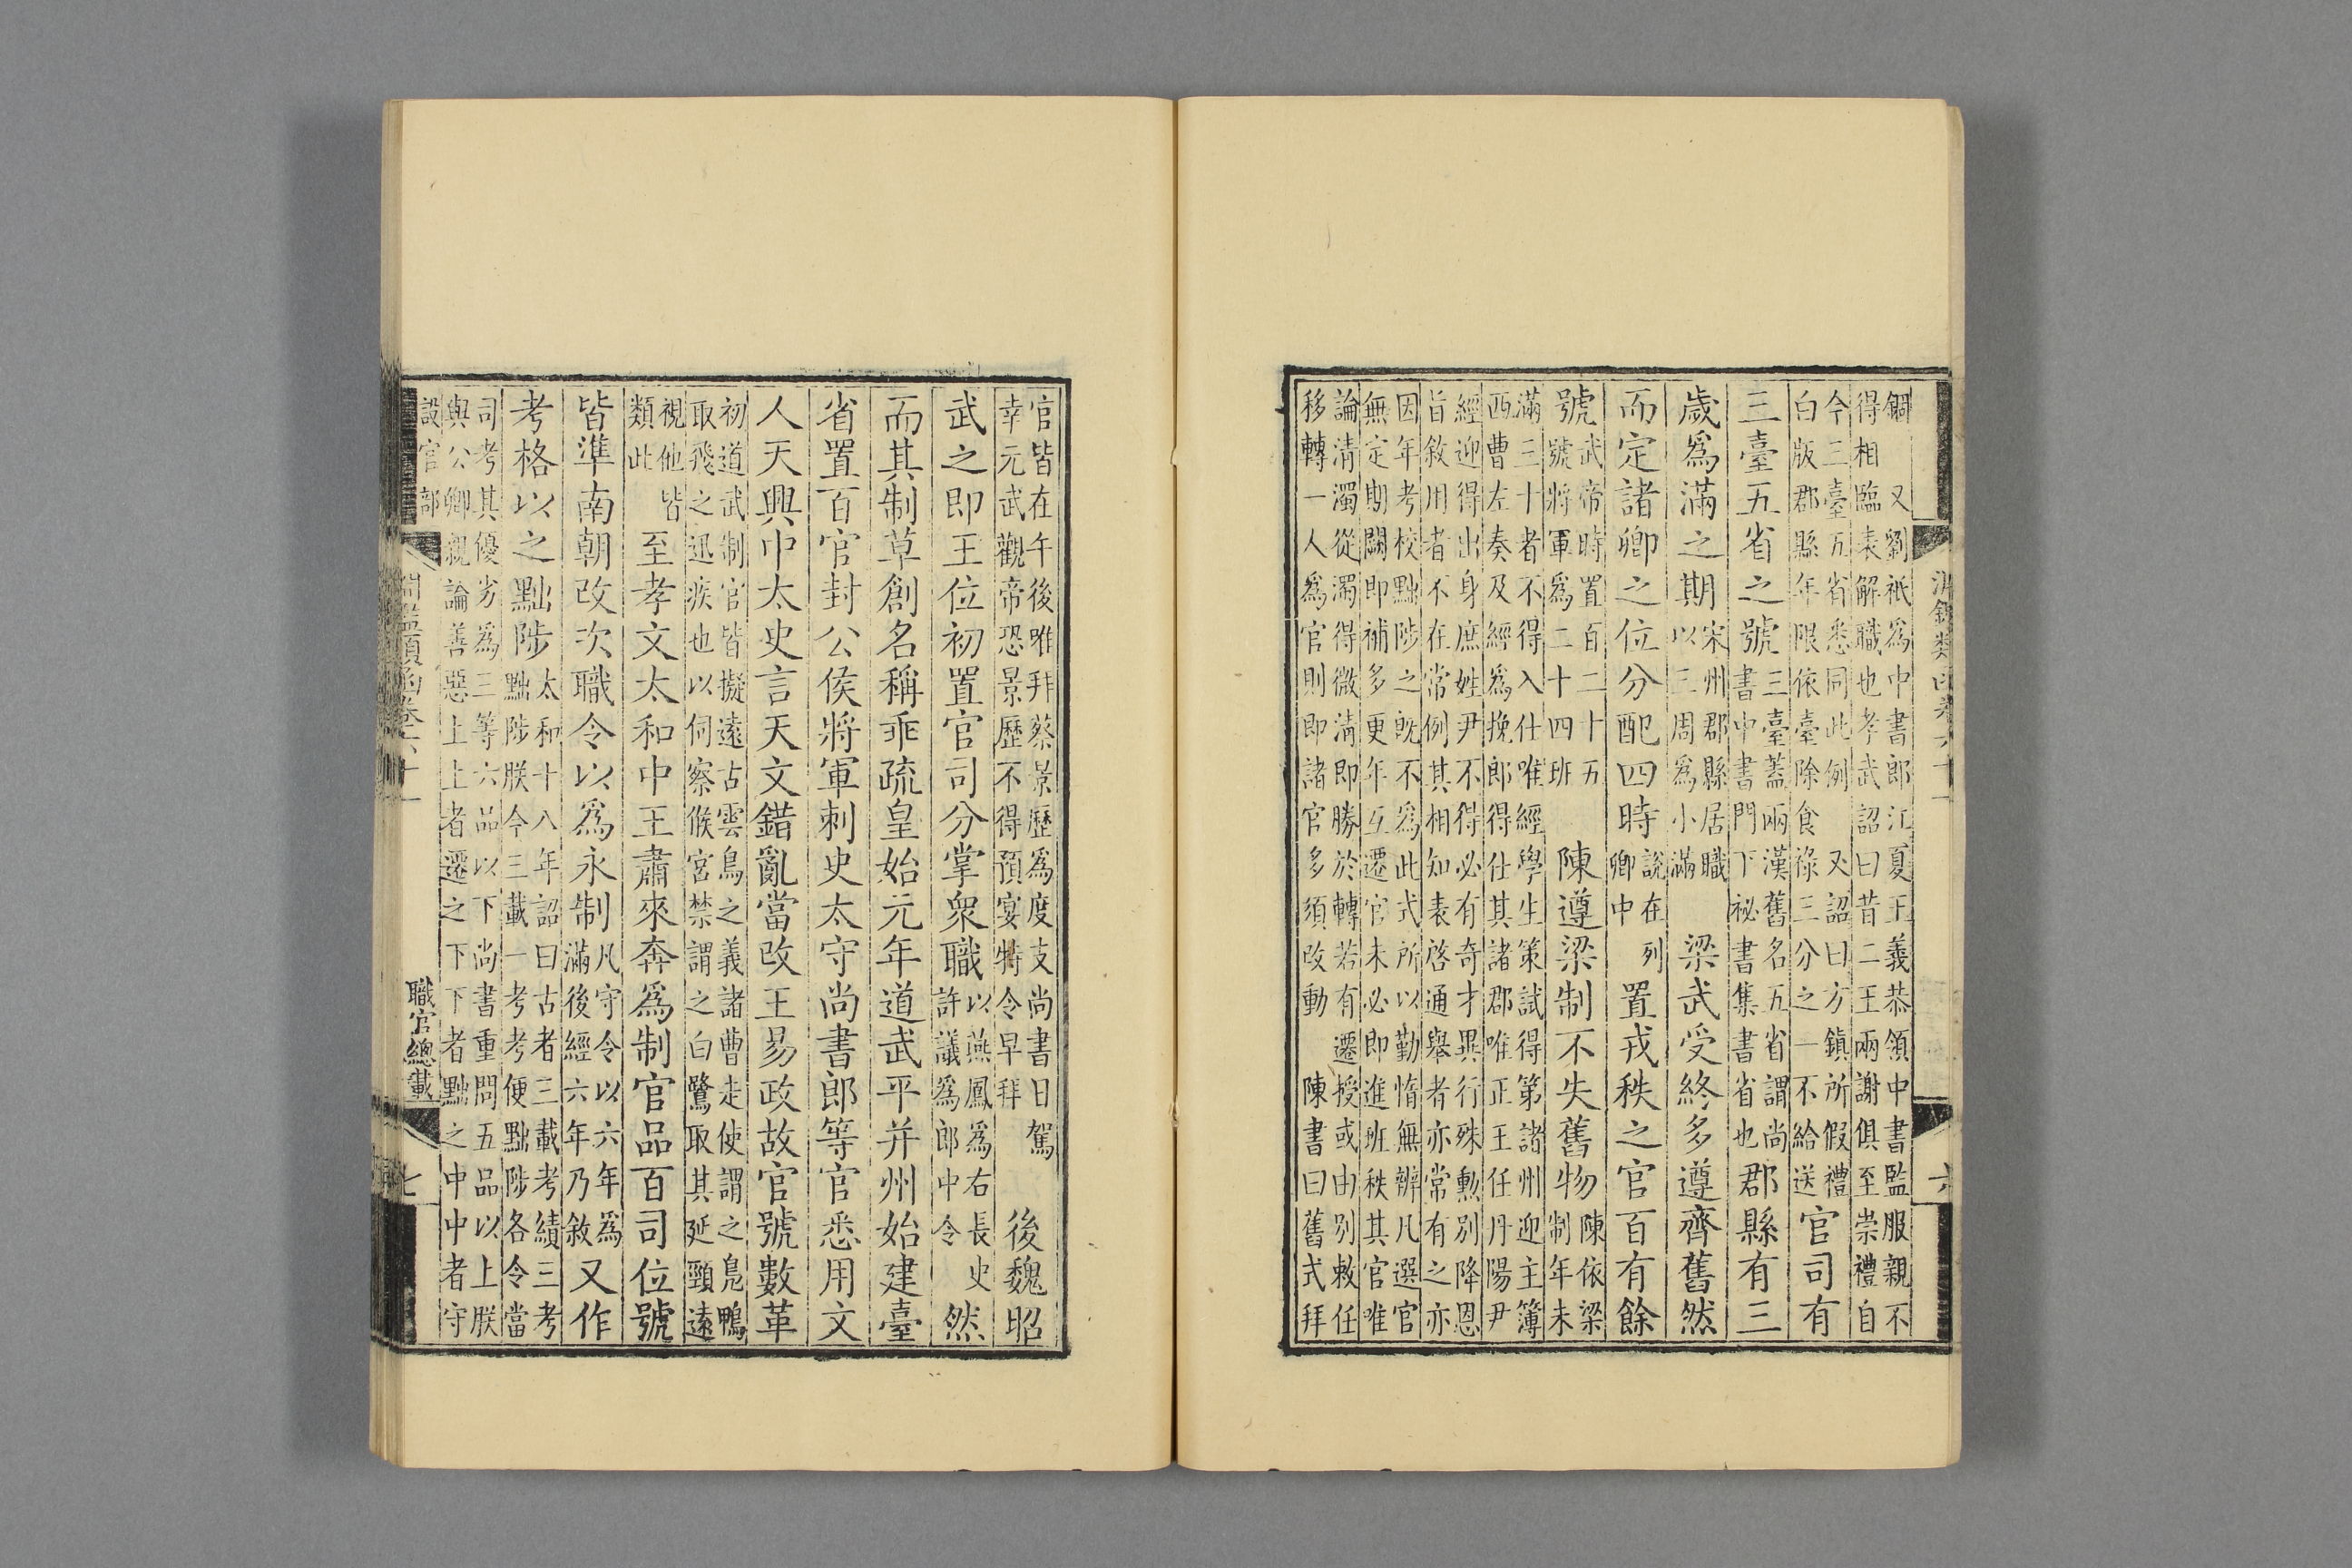 錮　又劉祇爲中書郎江夏王義恭領中書監服親不
得相臨表解職也孝武詔曰昔二王兩謝俱至崇禮自
今三臺五省悉同此例　又詔曰方鎮所假禮
白版郡縣年限依臺除食祿三分之一不給送
官司有
三臺五省之號
三臺蓋兩漢舊名五省謂尚
書中書門下祕書集書省也
郡縣有三
歲爲滿之期
宋州郡縣居職
以三周爲小滿
梁武受終多遵齊舊然
而定諸卿之位分配四時
說在列
卿中
置戎秩之官百有餘
號
武帝時置百二十五
號將軍爲二十四班
陳遵梁制不失舊物
陳依梁
制年未
滿三十者不得入仕唯經學生策試得第諸州迎主簿
西曹左奏及經爲挽郎得仕其諸郡唯正王任丹陽尹
經迎得出身庶姓尹不得必有奇才異行殊勳別降恩
旨敘用者不在常例其相知表啓通舉者亦常有之亦
因年考校黜陟之既不爲此式所以勤惰無辨凡選官
無定期闕即補多更年互遷官未必即進班秩其官唯
論清濁從濁得微清即勝於轉若有遷授或由別敕任
移轉一人爲官則即諸官多須改動　陳書曰舊式拜
官皆在午後唯拜蔡景歷爲度支尚書日駕
幸元武觀帝恐景歷不得預宴特令早拜
後魏昭
武之即王位初置官司分掌衆職
以燕鳳爲右長史
許議爲郎中令
然
而其制草創名稱乖疏皇始元年道武平并州始建臺
省置百官封公侯將軍刺史太守尚書郎等官悉用文
人天興中太史言天文錯亂當改王易政故官號數革
初道武制官皆擬遠古雲鳥之義諸曹走使謂之鳧鴨
取飛之迅疾也以伺察候宮禁謂之白鷺取其延頸遠
視他皆
類此
至孝文太和中王肅來奔爲制官品百司位號
皆準南朝改次職令以爲永制
凡守令以六年爲
滿後經六年乃敘
又作
考格以之黜陟
太和十八年詔曰古者三載考績三考
黜陟朕今三載一考考便黜陟各令當
司考其優劣爲三等六品以下尚書重問五品以上朕
與公卿親論善惡上上者遷之下下者黜之中中者守
設官部
淵鑑類函卷六十一
職官總載
七